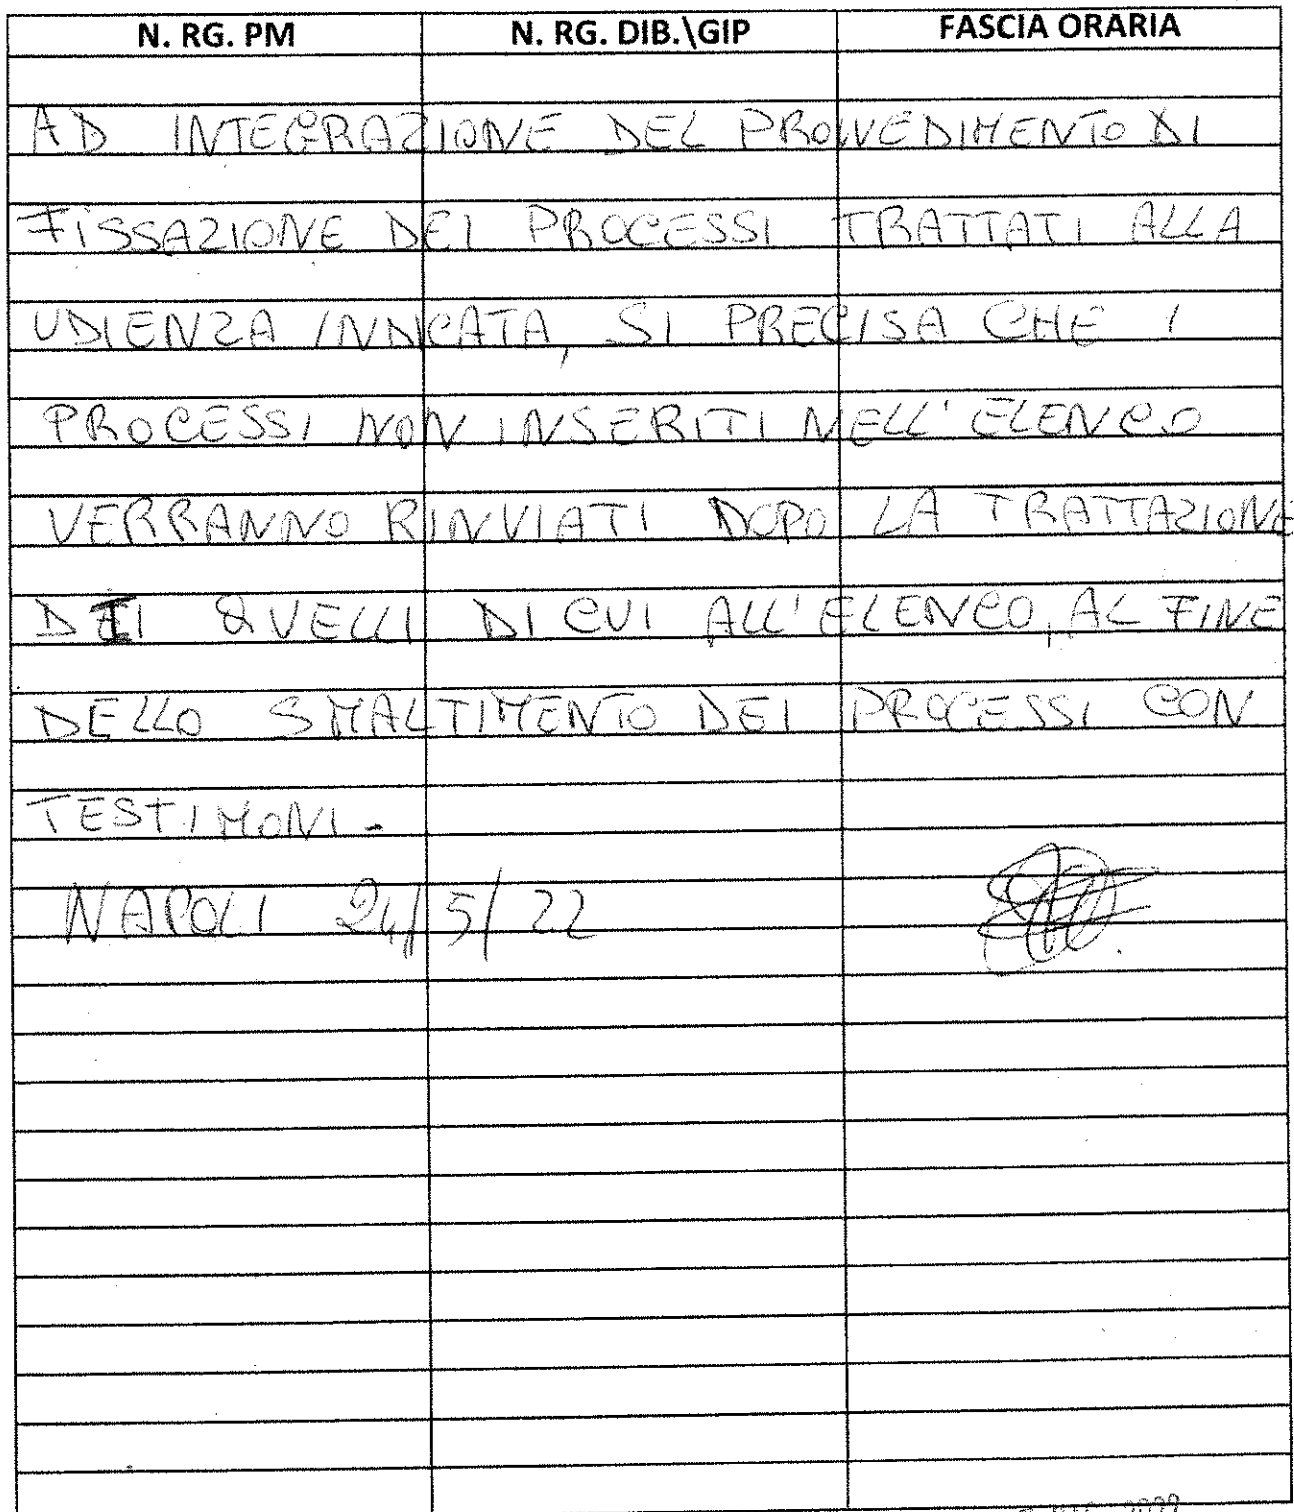 N. RG. PM N. RG. DIB.\GIP FASCIA ORARIA
AD INTEGRAZIONE DEL PROVVEDIMENTO DI
FISSAZIONE DEI PROCESSI TRATTATI ALLA
UDIENZA INDICATA, SI PRECISA CHE I
PROCESSI NON INSERITI NELL'ELENCO
VERRANNO RINVIATI DOPO LA TRATTAZIONE
DI QUELLI DI CUI ALL'ELENCO, AL FINE
DELLO SMALTIMENTO DEI PROCESSI CON
TESTIMONI.
NAPOLI 24/5/22